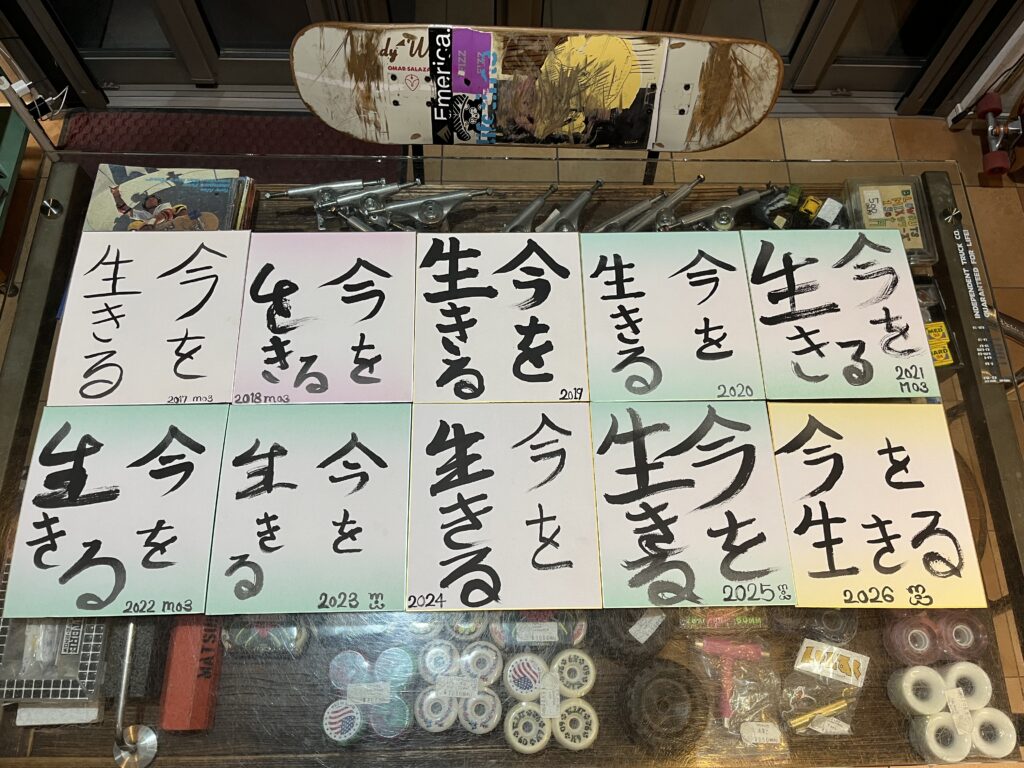 OMAR SALAZAR
Emerica.
INDEPENDENT TRUCK CO.
GUARANTEED FOR LIFE!
今を
生きる
2017 mo3
今を
生きる
2018 mo3
今を
生きる
2019
今を
生きる
2020
今を
生きる
2021
mo3
今を
生きる
2022 mo3
今を
生きる
2023
今を
生きる
2024
今を
生きる
2025
今を
生きる
2026